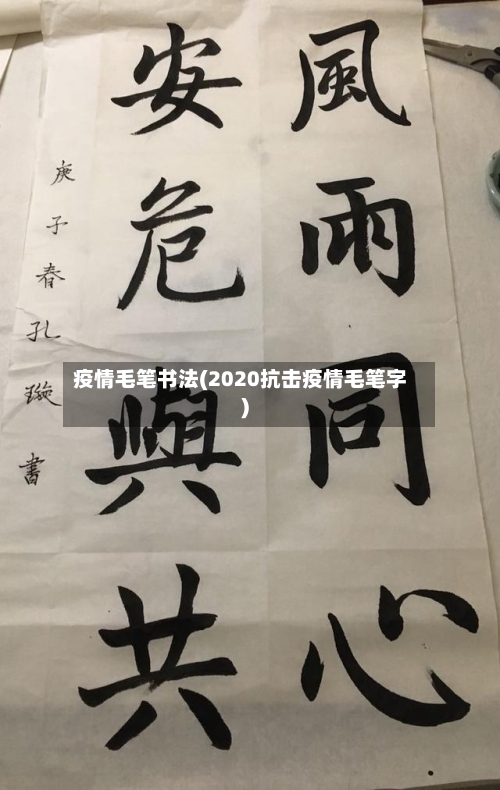 風雨同心
安危與共
庚子春孔璇書
疫情毛笔书法(2020抗击疫情毛笔字
)